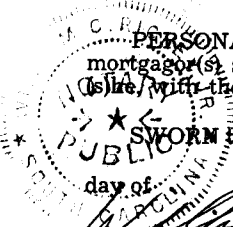 PERSONA
mortgagor(s)
(s)he, with the
SWORN
day of
M. C. RIC
NOTARY
PUBLIC
SOUTH CAROLINA